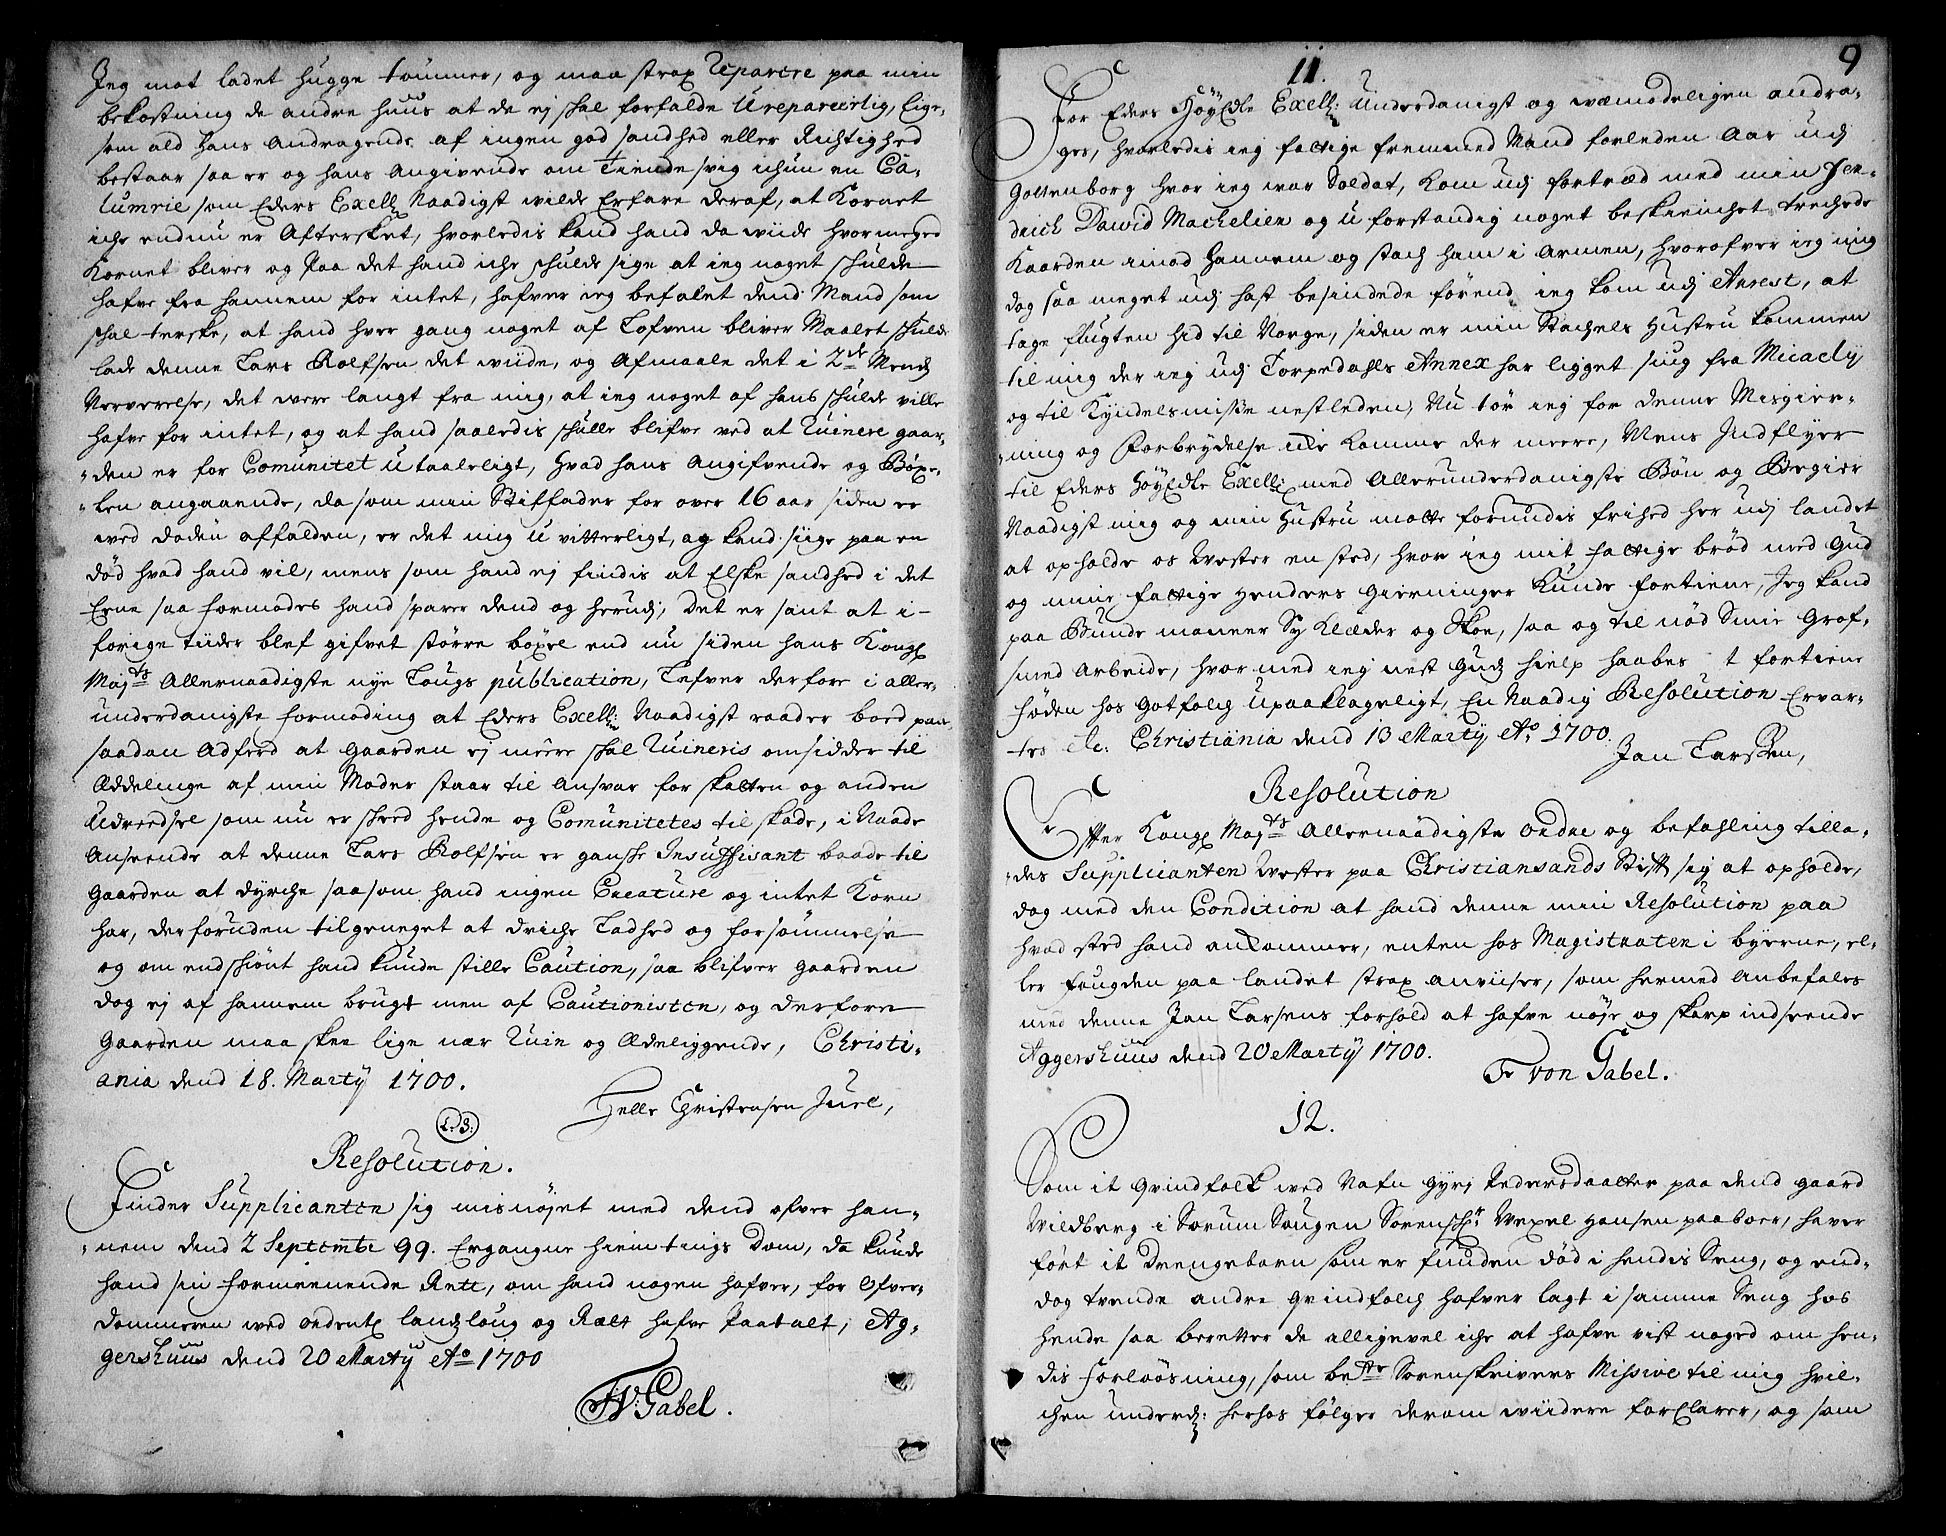 Jeg mot ladet hugge tømmer, og maa strax Reparere paa min
bekostning de andre huus at de ej skal forfalde Ureparerlig, lige-
som ald hans Andragende af ingen god sandhed eller Richtighed
bestaar saa er og hans Angivende om Tiendesvig ichun en Ca-
lumnie som Eders Excell: Naadigst vilde Erfare deraf, at Kornet
iche endnu er Aftersket, hvorledis kand hand da wiide hvormeged
Kornet bliver og Paa det hand iche schulde sige at ieg noget schulde
hafve fra hannem for intet, hafver ieg befalet dend Mand som
schal terske, at hand hver gang noget af Lofven bliver Maalet schulde
lade denne Lars Rolfsen det wiide, og Afmaale det i 2de Mends
Nerverelse, det were langt fra mig, at ieg noget af hans schulde ville
hafve for intet, og at hand saaledis schulle blifve ved at Ruinere gaar-
den er for Comunitet Utaaleligt, hvad hans Angifvende og Böxe-
len angaaende, da som min Stiffader for over 16 aar siden er
wed döden affalden, er det mig uvitterligt, og kand siige paa en
död hvad hand vil, mens som hand ej findis at Elske sandhed i det
Eene saa formodes hand sparer dend og herudj, Det er sant at i-
forige tiider blef gifvet större böxel end nu siden hans Kongl
Majts Allernaadigste nye Lougs publication, Lefver derfore i aller-
underdanigste formoding at Eders Excell: Naadigst raader boed paa
saadan Adferd at gaarden ej meere schal Ruineris omsidder til
Öddelinge af min Moder staar til Ansvar for skatten og anden
Udreedsel som nu er skeed hende og Comunitetes til skade, i Naade
Anseende at denne Lars Rolfsen er gansche Insuffisant baade til
gaarden at dyrche saasom hand ingen Creature og intet Korn
har, desforuden tilgeneget at driche Ladhed og forsömmelse
og om endschiönt hand kunde stille Caution, saa blifver gaarden
dog ej af hannem brugt men af Cautionisten, og derfore
gaarden maa skee lige nær Ruin og Ödeliggende, Christi-
ania dend 18. Martij 1700.
Helle Christensen Juel,
L. S:
Resolution.
Finder Supplicanten sig misnöjet med dend ofver han-
nem dend 2 Septembr 99. Ergangne hiemtings Dom, da kunde
hand sin formeenende Rett, om hand nogen hafver, for Ofver-
dommeren wed ordentl landsloug og Rætt hafve Paatalt, Ag-
gershuus dend 20 Martij Ao 1700
FV: Gabel.
9
11.
For Eders Höyedle Excell: Underdanigst og wemodeligen andra-
ges, hvorledis ieg fattige fremmed Mand forleden Aar udj
Gottenborg hvor ieg war Soldat, kom udj fortræd med min Fen-
drich Dawid Machelien og uforstandig noget beskienchet trechede
Kaarden imod hannem og stach ham i Armen, hvorofver ieg mig
dog saa meget udj hast besindede förend ieg kom udj Arrest, at
tage flugten hid til Norge, siden er min Stachels Hustru kommen
til mig der ieg udj Torpedahls Annex har ligget siug fra Micaelij
og til Kyndelsmisse nestleden, Nu tör ieg for denne Misgier-
ning og Forbrydelse icke komme der meere, Mens Indflyer
til Eders Höyedle Excell: med Allerunderdanigste Bön og Begier
Naadigst mig og min Hustru motte forundis frihed her udj landet
at opholde os Wester en sted, hvor ieg mit fattige bröd med Gud
og mine fattige Henders Gierninger kunde fortiene, Jeg kand
paa Bunde maneer Sy Klæder og Skoe, saa og til nöd Smie Grof-
smed arbeide, hvormed ieg nest Guds hielp haabes t fortiene
föden hos Gotfolch Upaaklageligt, En Naadig Resolution Ervar-
tes etc: Christiania dend 13 Martij Ao 1700.
Jan Larssen,
Resolution
Efter Kongl Majts Allernaadigste ordre og befahling tilla-
des Supplicanten Wester paa Christiansands Stift sig at opholde,
dog med den Condition at hand denne min Resolution paa
hvad sted hand ankommer, enten hos Magistraten i byerne, el-
ler fougden paa landet strax anviiser, som hermed Anbefales
med denne Jan Larsens forhold at hafve nöje og skarp indseende
Aggershuus dend 20 Martij 1700.
Fr von Gabel.
12.
Som it Qvindfolk wed Nafn Gyri Pedersdaatter paa dend gaard
Wildberg i Sörum Sougen Sorenschr: Wexel Hansen paaboer, haver
föd it Drengebarn som er funden död i hendis Seng, og end-
dog tvende andre Qvindfolch hafver lagt i samme Seng hos
hende saa beretter de alligevel iche at hafve vist noged om hen-
dis forlösning, som bete Sorenskrivers Missive til mig hvil-
chen underd: herhos fölger derom wiidere forclarer, og som